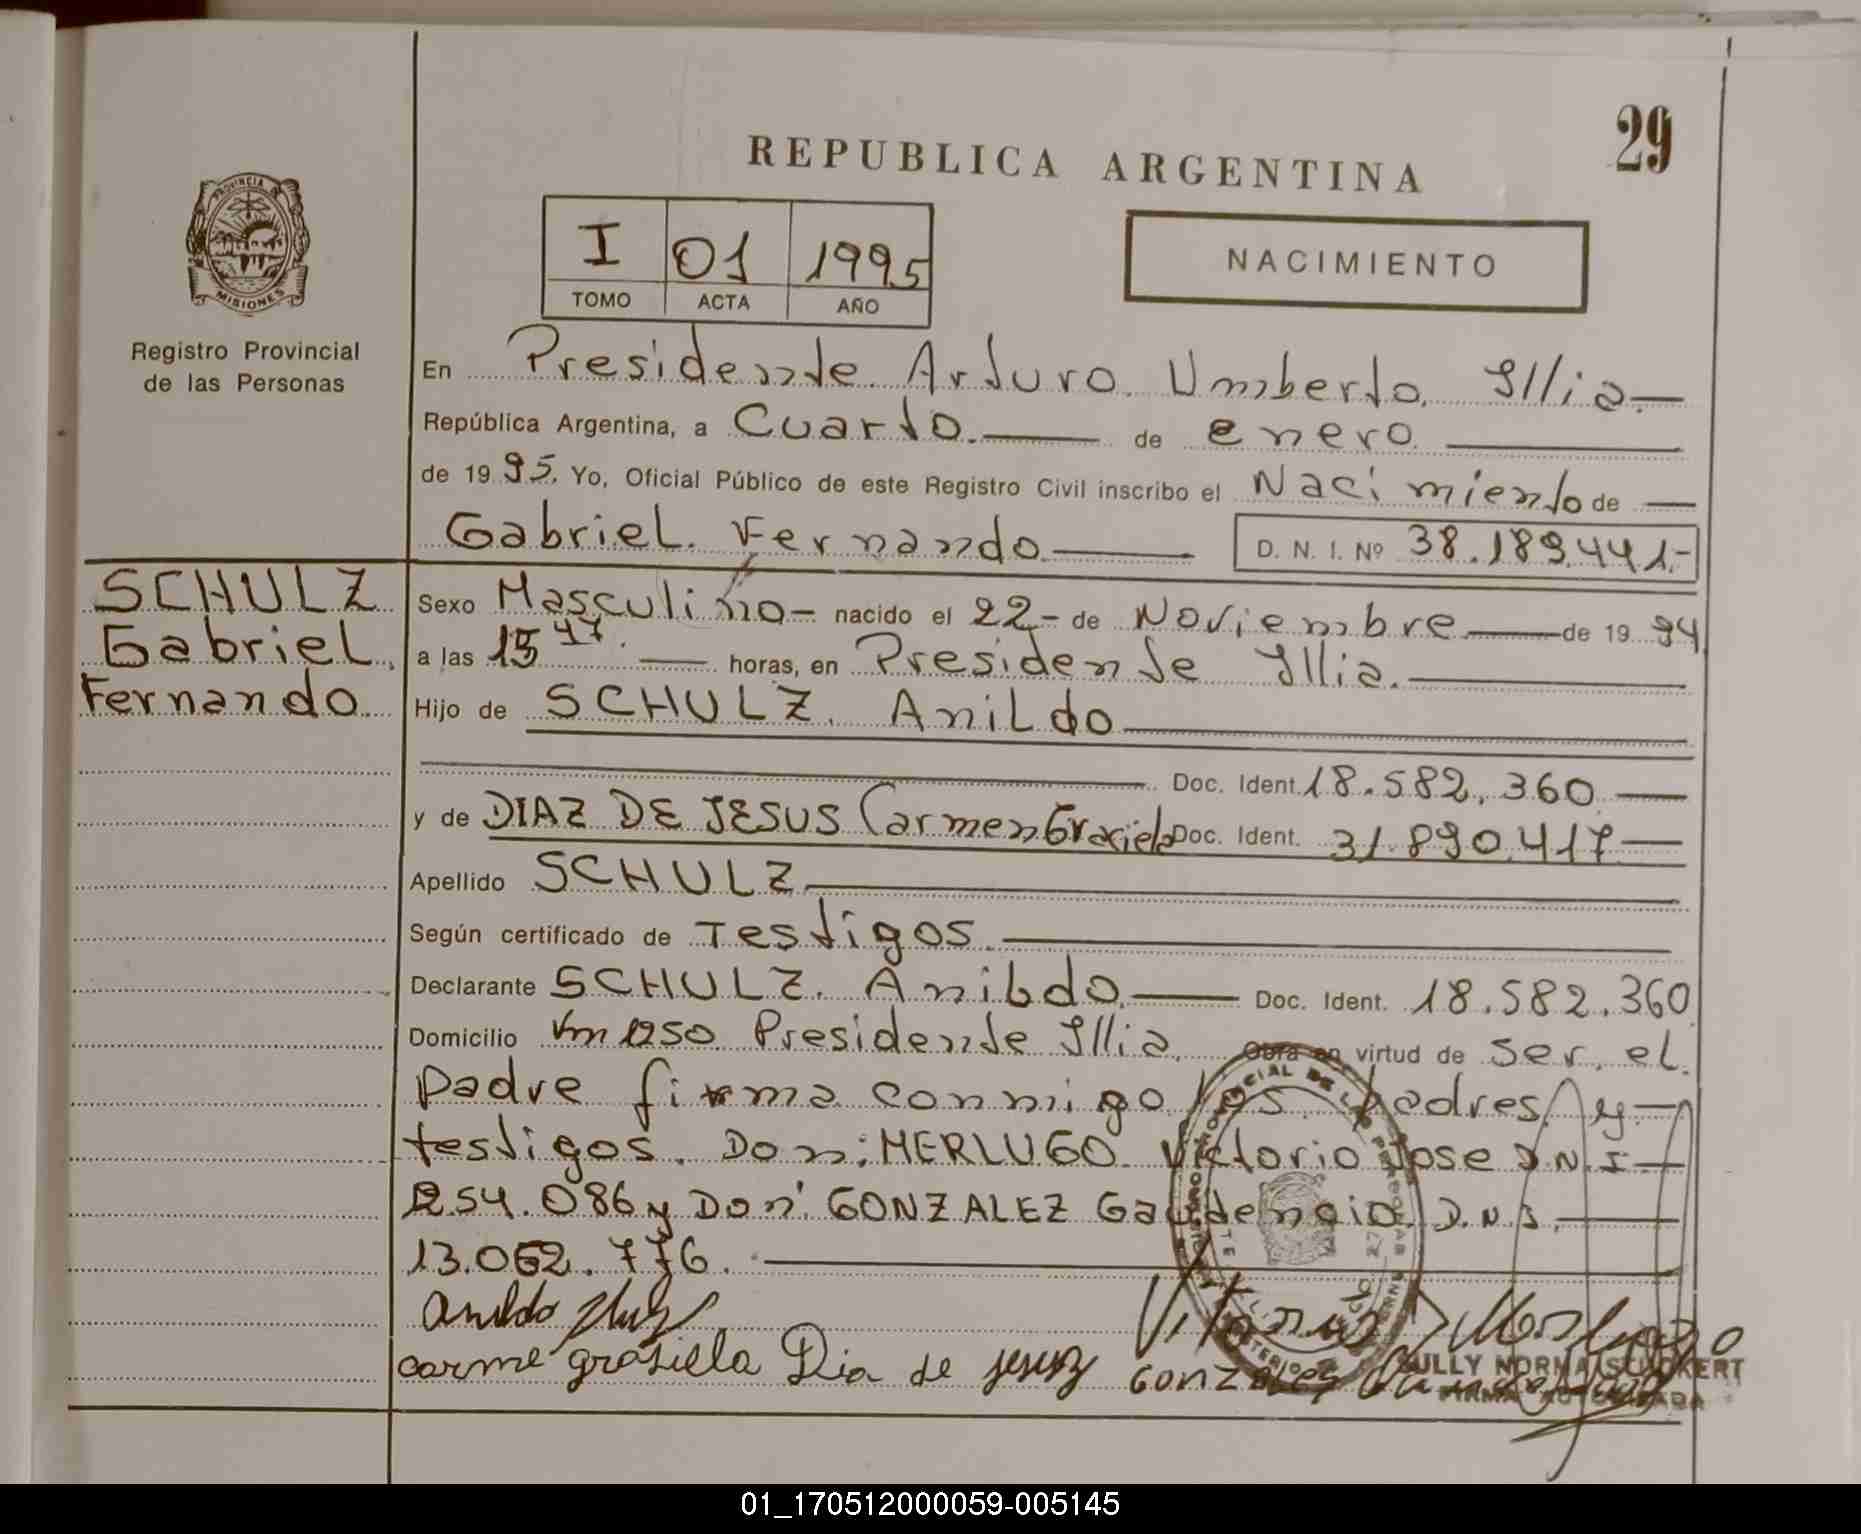 29
REPUBLICA ARGENTINA
PROVINCIA DE
MISIONES
Registro Provincial
de las Personas
I 01 1995
TOMO ACTA AÑO
NACIMIENTO
En Presidente Arturo Umberto Illia.
República Argentina, a Cuarto. de enero
de 1995. Yo, Oficial Público de este Registro Civil inscribo el Nacimiento de
Gabriel Fernando D. N. I. Nº 38.189.441.-
SCHULZ
Gabriel
Fernando
Sexo Masculino- nacido el 22- de Noviembre de 1994
a las 15 47 horas, en Presidente Illia.
Hijo de SCHULZ Anildo
Doc. Ident. 18.582.360
y de DIAZ DE JESUS Carmen Graciela Doc. Ident. 31.890.417
Apellido SCHULZ
Según certificado de Testigos.
Declarante SCHULZ. Anildo. Doc. Ident. 18.582.360
Domicilio Km 1250 Presidente Illia. Obra en virtud de ser el
padre firma conmigo los padres y
testigos. Don: MERLUGO Victorio Jose D.N.I
254.086 y Don GONZALEZ Gaudencio D.N.I.
13.062.776.
Anildo
carme grasiela Dia de jesus Gonzalez
FIRMA AUTORIZADA
01_170512000059-005145